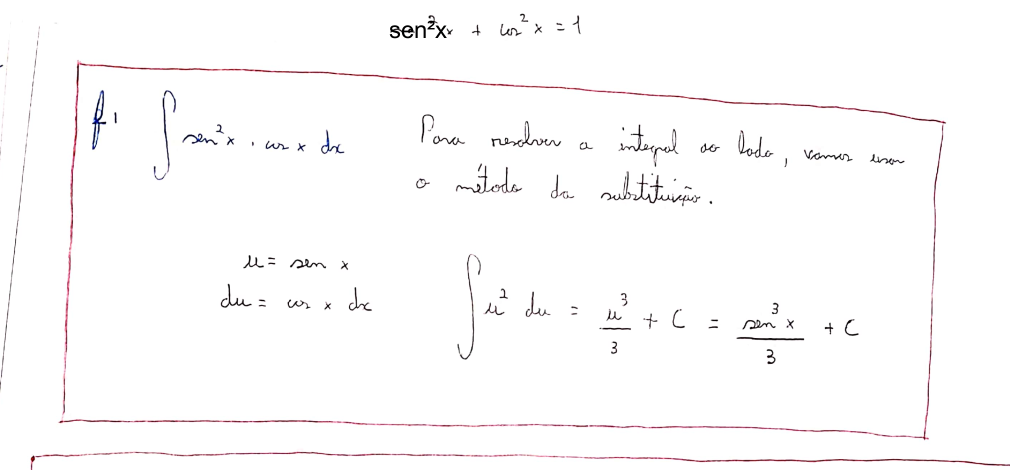 sen²x + cos² x = 1
f. ∫ sen² x . cos x dx
Para resolver a integral ao lado, vamos usar
o método da substituição.
u = sen x
du = cos x dx
∫ u² du = u³/3 + C = sen³ x/3 + C